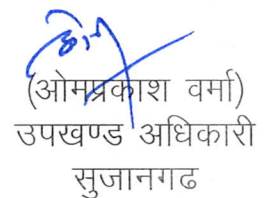 (ओमप्रकाश वर्मा)
उपखण्ड अधिकारी
सुजानगढ